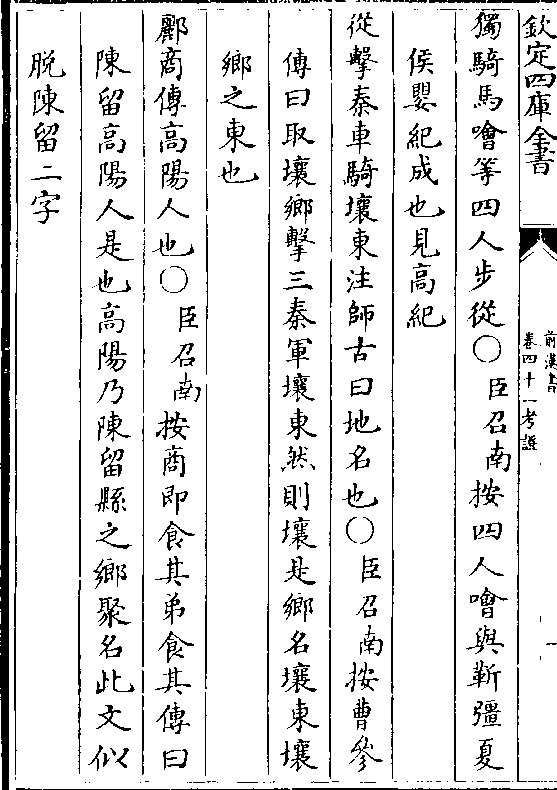 欽定四庫全書
前漢書
卷四十一考證
獨騎馬噲等四人步從〇臣召南按四人噲與靳彊夏
侯嬰紀成也見高紀
從擊秦車騎壤東注師古曰地名也〇臣召南按曹參
傳曰取壤鄉擊三秦軍壤東然則壤是鄉名壤東壤
鄉之東也
酈商傳高陽人也〇臣召南按商即食其弟食其傳曰
陳留高陽人是也高陽乃陳留縣之鄉聚名此文似
脱陳留二字
一